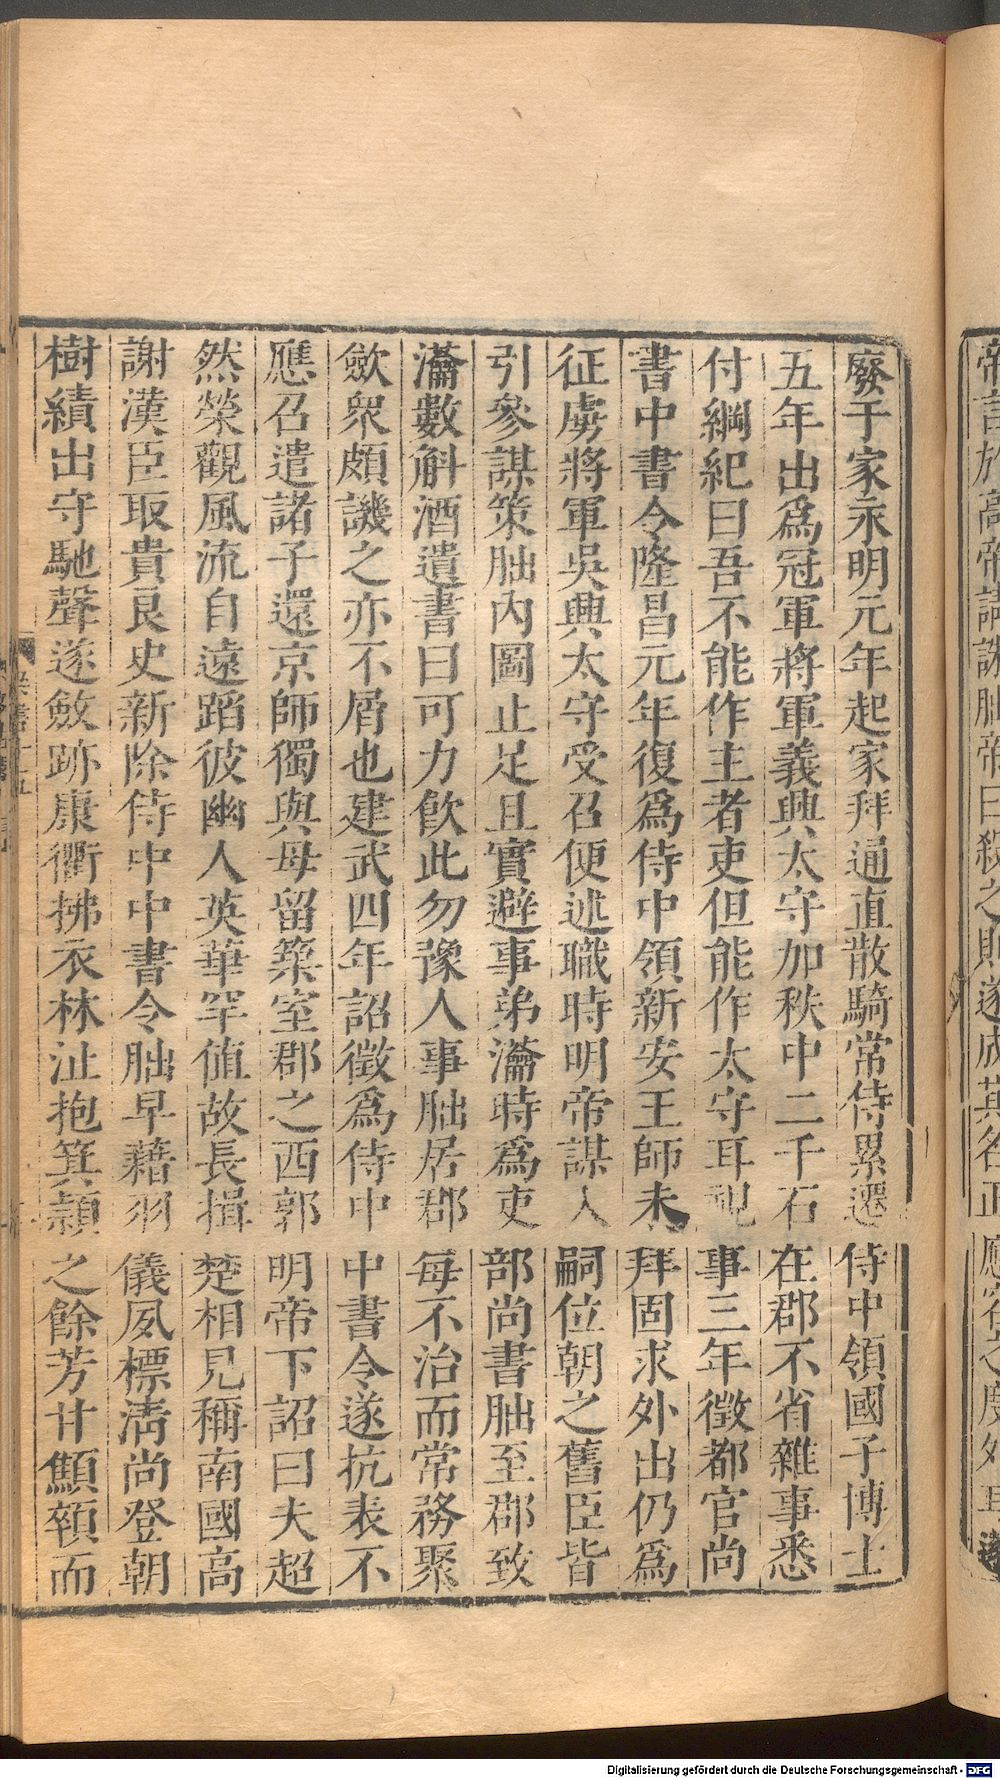 帝言於高帝請誅朏帝曰殺之則遂成其名正應容之度外耳遂
廢于家永明元年起家拜通直散騎常侍累遷侍中領國子博士
五年出爲冠軍將軍義興太守加秩中二千石在郡不省雜事悉
付綱紀曰吾不能作主者吏但能作太守耳視事三年徵都官尚
書中書令隆昌元年復爲侍中領新安王師未拜固求外出仍爲
征虜將軍吳興太守受召便述職時明帝謀入嗣位朝之舊臣皆
引參謀策朏內圖止足且實避事弟瀹時爲吏部尚書朏至郡致
瀹數斛酒遺書曰可力飮此勿豫人事朏居郡每不治而常務聚
歛衆頗譏之亦不屑也建武四年詔徵爲侍中中書令遂抗表不
應召遣諸子還京師獨與母留築室郡之西郭明帝下詔曰夫超
然榮觀風流自遠蹈彼幽人英華罕值故長揖楚相見稱南國高
謝漢臣取貴良史新除侍中中書令朏早藉羽儀夙標淸尚登朝
樹績出守馳聲遂斂跡康衢拂衣林沚抱箕潁之餘芳甘顦顇而
Digitalisierung gefördert durch die Deutsche Forschungsgemeinschaft - DFG